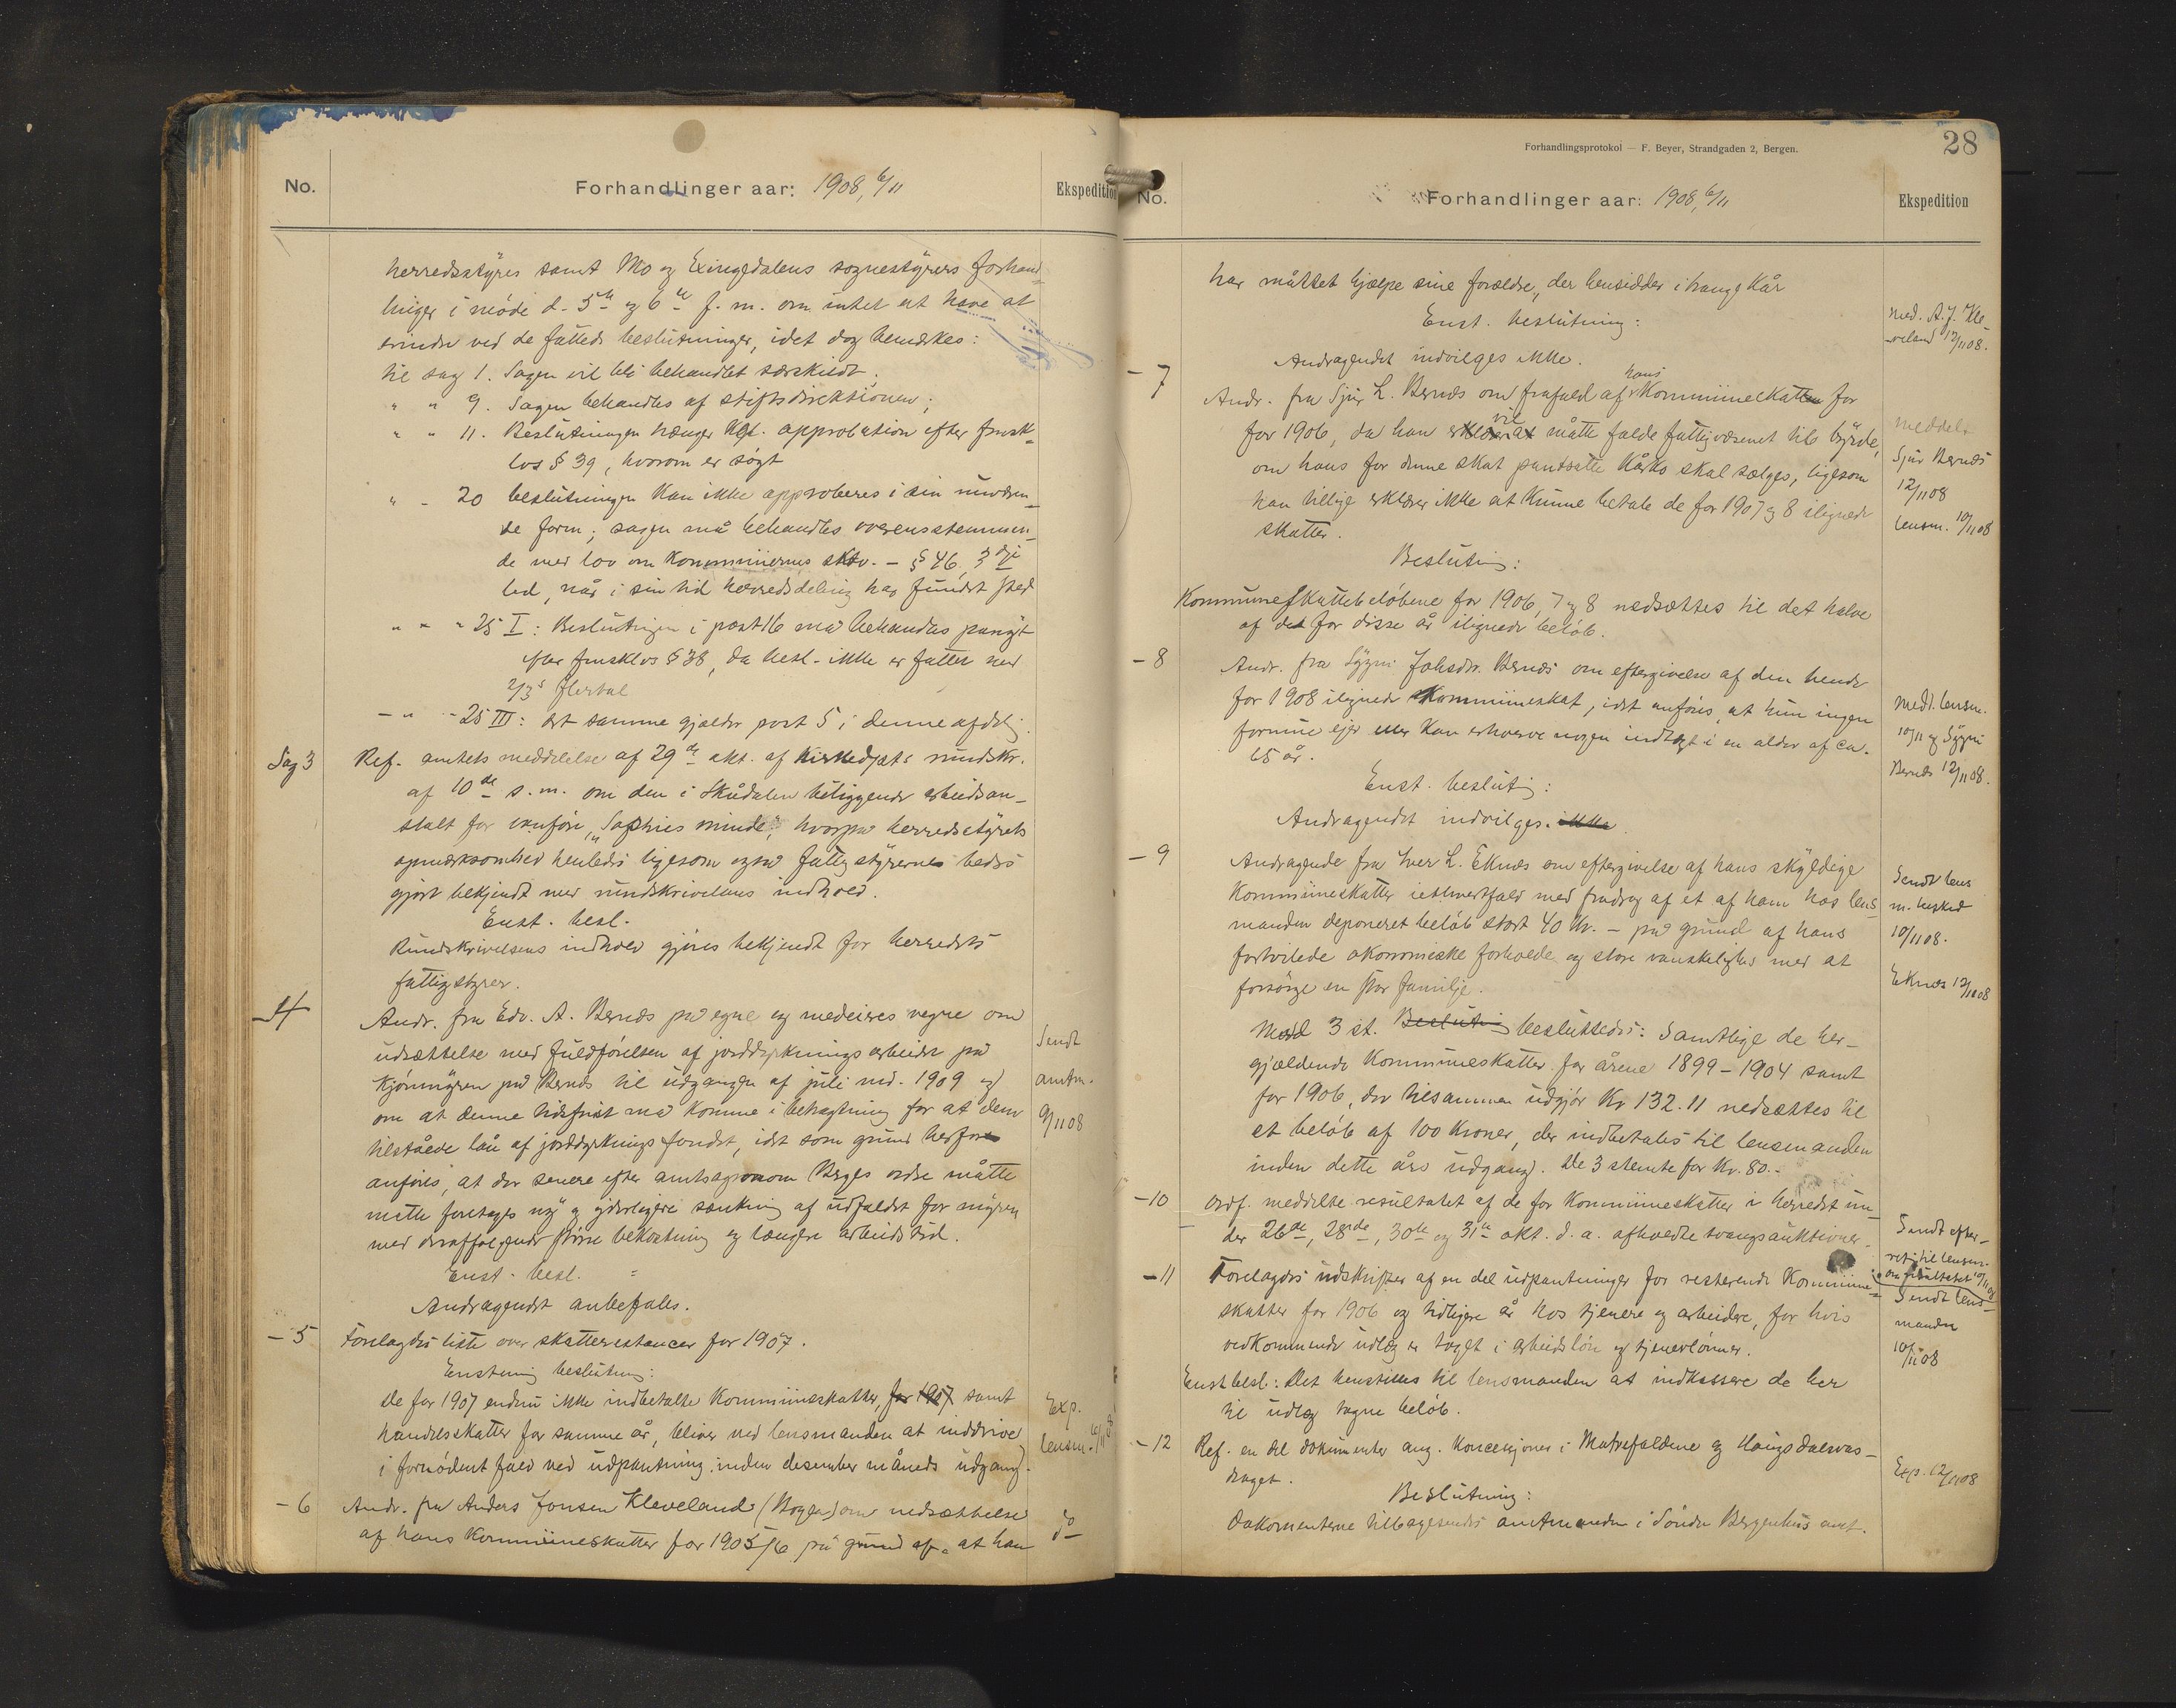 No.
Forhandlinger aar: 1908, 6/11
Ekspedition
herredsstyres samt Mo og Exingedalens sognestyrers forhand=
linger i møde d. 5te og 6te f. m. om intet at have at
erindre ved de fattede beslutninger, idet dog bemærkes:
til sag 1. Sagen vil bli behandlet særskildt.
" " 9. Sagen behandles af stiftsdirektionen;
" " 11. Beslutningen trænger kgl. approbation efter
lov § 39, hvorom er søgt
" - 20 beslutningen kan ikke approberes i sin nuværen_
de form; sagen må behandles overensstemmen_
de med lov om kommunernes sktv. - § 46, 3dje
led, når i sin tid herredsdeling har fundet sted
" " " 25 I: Beslutningen i post 16 må behandles pånyt
efter § 38, da besl. ikke er fattet med
2/3s flertal
- " - 25 III: det samme gjælder post 5 i denne afdelg.
Sag 3
Ref. amtets meddelelse af 29de okt. af kirkedpts rundskr.
af 10de s. m. om den i Skådalen beliggende arbeidsan_
stalt for vanføre, "Sophies minde", hvorpå herredsstyrets
opmærksomhed henledes ligesom også fattigstyrerne bedes
gjort bekjendt med rundskrivelsens indhold.
Enst. besl.
Rundskrivelsens indhold gjøres bekjendt for herredets
fattigstyrer.
- 4
Andr. fra Edv. A. Bernes på egne og medeieres vegne om
udsættelse med fuldførelsen af jorddyrkningsarbeidet på
Kjørmyren på Bernes til udgangen af juli md. 1909 og
om at denne tidsfrist må komme i betragtning for at dem
tilståede lån af jorddyrkningsfondet, idet som grund herfor
anføres, at der senere efter amtsagronom Berges ordre måtte
måtte foretages ny og yderligere sænkning af udfaldet for myren
med deraffølgende større bekostning og længere arbeidstid.
Enst. besl. =
Andragendet anbefales.
Sendt
amtm.
9/11 08
- 5
Forelagdes liste over skatterestancer for 1907.
Enstemig beslutning:
De for 1907 endnu ikke indbetalte kommuneskatter, for 1907 samt
handelsskatter for samme år, bliver ved lensmanden at inddrive
i fornødent fald ved udpantning inden desember måneds udgang.
Exp.
lensm. 6/11 8
- 6
Andr. fra Anders Jonsen Kleveland (Bogen) om nedsættelse
af hans kommuneskatter for 1905/6 på grund af at han
do
Forhandlingsprotokol — F. Beyer, Strandgaden 2, Bergen.
28
No.
Forhandlinger aar: 1908, 6/11
Ekspedition
har måttet hjælpe sine forældre, der hensidder i trange kår
Enst. beslutning:
Andragendet indvilges ikke.
Med. A. J. Kle_
veland 12/11 08.
- 7
Andr. fra Sjur L. Bernes om frafald af hans kommuneskatten for
for 1906, da han vil måtte falde fattigvæsenet til byrde,
om hans for denne skat pantsatte skal sælges, ligesom
han tillige erklærer ikke at kunne betale de for 1907 og 8 ilignede
skatter.
Beslutng:
Kommuneskattebeløbene for 1906, 7 og 8 nedsættes til det halve
af det for disse år ilignede beløb.
meddelt
Sjur Bernes
12/11 08
lensm. 10/11 08
- 8
Andr. fra Sygni Johsdtr. Bernes om eftergivelse af den hende
for 1908 ilignede kommuneskat, idet anføres, at hun ingen
formue ejer eller kan erhverve nogen indtægt i en alder af ca.
65 år.
Enst. beslutng:
Andragendet indvilges. ikke.
Medt. lensm.
10/11 og Sygni
Bernes 12/11 08.
- 9
Andragende fra Iver L. Eknes om eftergivelse af hans skyldige
kommuneskatter iethvertfald med fradrag af et af ham hos lens_
manden deponeret beløb stort 40 Kr. - på grund af hans
fortvilede økonomiske forholde og store vanskelighed med at
forsørge en stor familje.
Med 3 st. Beslutning besluttedes: Samtlige de her_
gjældende kommuneskatter for årene 1899 - 1904 samt
for 1906, der tilsammen udgjør Kr 132.11 nedsættes til
et beløb af 100 kroner, der indbetales til lensmanden
inden dette års udgang. De 3 stemte for Kr. 80.-
Sendt lens
m. besked
10/11 08.
Eknes 12/11 08
- 10
Ordf. meddelte resultatet af de for kommuneskatter i herredet un_
der 26de, 28de, 30te og 31te okt. d. a. afholdte tvangsauktioner.
Sendt efter_
ret. til lensm.
om resultatet 10/11 08
- 11
Forelagdes udskrifter af en del udpantninger for resterende kommune=
skatter for 1906 og tidligere år hos tjenere og arbeidere, for hvis
vedkommende udlæg er taget i arbeidsløn og tjenerlønner.
Enst besl: Det henstilles til lensmanden at indkassere de her
til udlæg tagne beløb.
Sendt lens_
manden
10/11 08
- 12
Ref. en del dokumenter ang. koncessjoner i Matrefaldene og Haugsdalsvas_
draget.
Beslutning:
Dokumenterne tilbagesendes amtmanden i Søndre Bergenhus amt.
Exp. 12/11 08